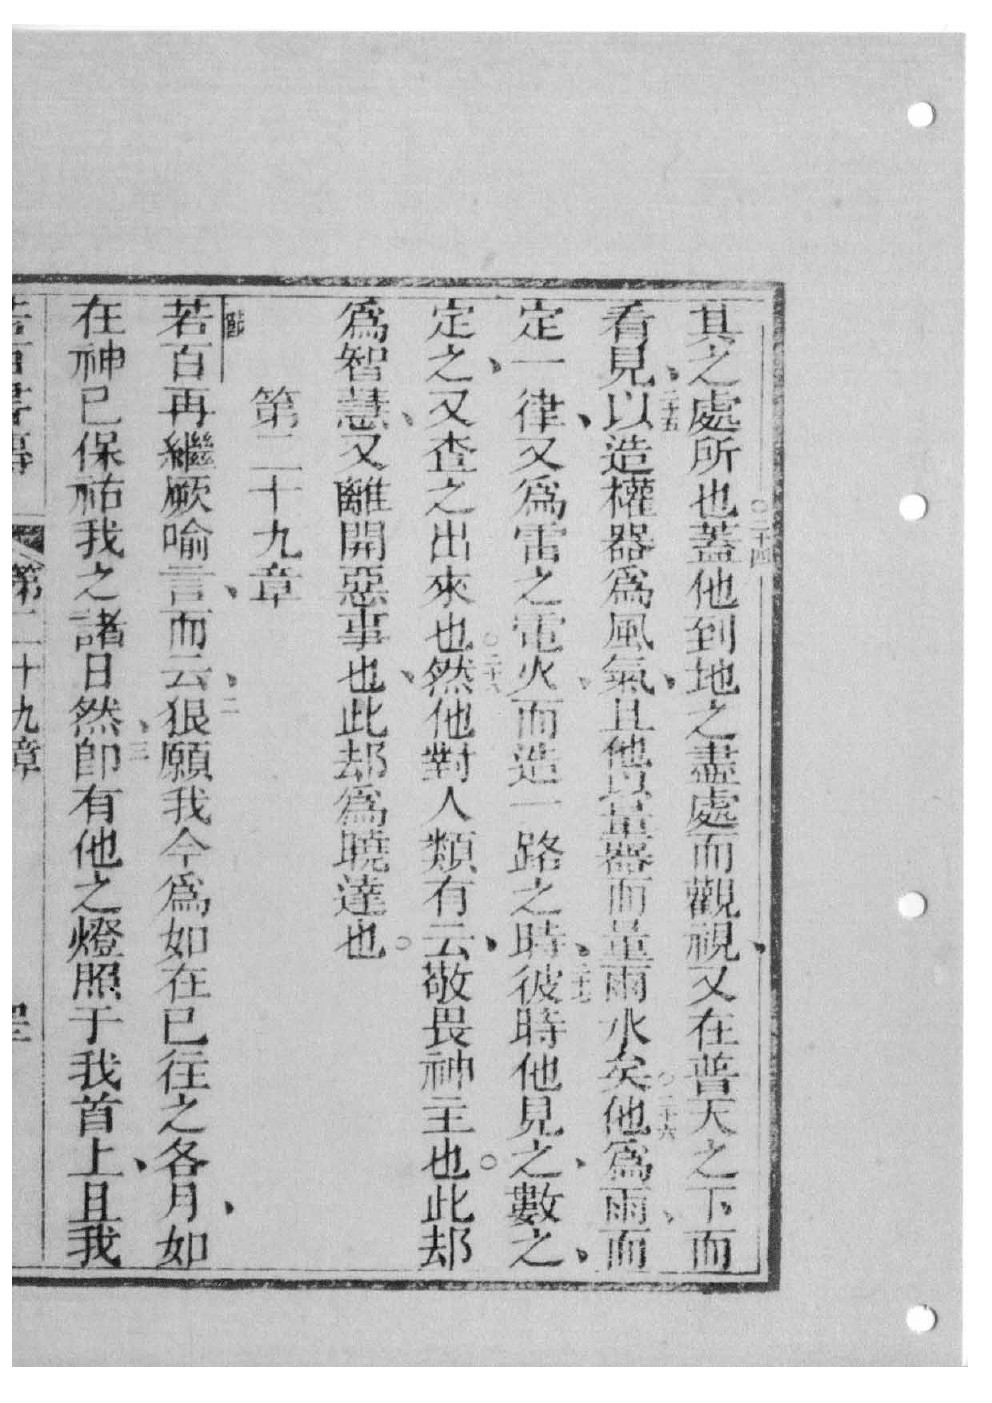 其之處所也〇二十四蓋他到地之盡處而觀視、又在普天之下而
看見、二十五以造權器爲風氣、且他以量器而量雨水矣〇二十六他爲雨、而
定一律、又爲雷之電火、而造一路之時、二十七彼時他見之、數之、
定之、又查之出來也〇二十八然他對人類有云、敬畏神主也〇此却
爲智慧、又離開惡事也、此却爲曉達也〇
第二十九章
若百再繼厥喻言、而云、二狠願我今爲如在已往之各月、如
在神已保祐我之諸日然、三卽有他之燈照于我首上、且我
第二十九章